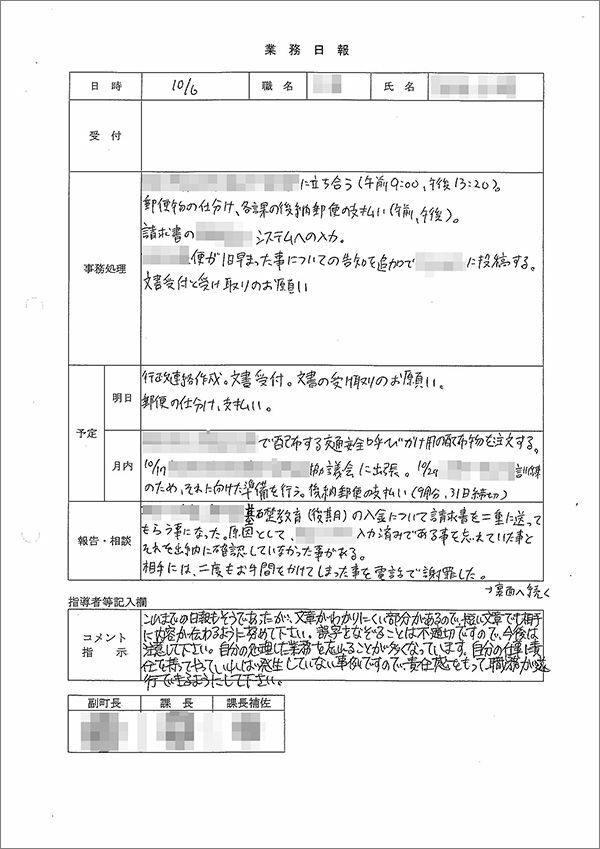 業務日報
日時 10/6 職名 氏名
受付
事務処理
に立ち合う(午前9:00、午後13:20)。
郵便物の仕分け、各課の後納郵便の支払い(午前、午後)。
請求書の システムへの入力。
便が1日早まった事についての告知を追加で に投稿する。
文書受付と受け取りのお願い
予定
明日
行政連絡作成。文書受付。文書の受け取りのお願い。
郵便の仕分け、支払い。
月内
で配布する交通安全呼びかけ用の配布物を注文する。
10/17 協議会に出張。10/24
のため、それに向けた準備を行う。後納郵便の支払い(9月分、31日締切)
報告・相談
基礎教育(後期)の入金について請求書を二重に送って
もらう事になった。原因として、 入力済みである事を忘れていた事と
それを出納に確認していなかった事がある。
相手には、二度もお手間をかけてしまった事を電話で謝罪した。
→裏面へ続く
指導者等記入欄
コメント
指示
これまでの日報もそうであったが、文章がわかりにくい部分があるので、短い文章でも相手
に内容が伝わるように努めて下さい。誤字をなぞることは不適切ですので、今後は
注意して下さい。自分の処理した業務を忘れることが多くなっています。自分の仕事に責
任を持ってやっていれば発生していない事例ですので、責任感をもって職務が遂
行できるようにして下さい。
副町長 課長 課長補佐